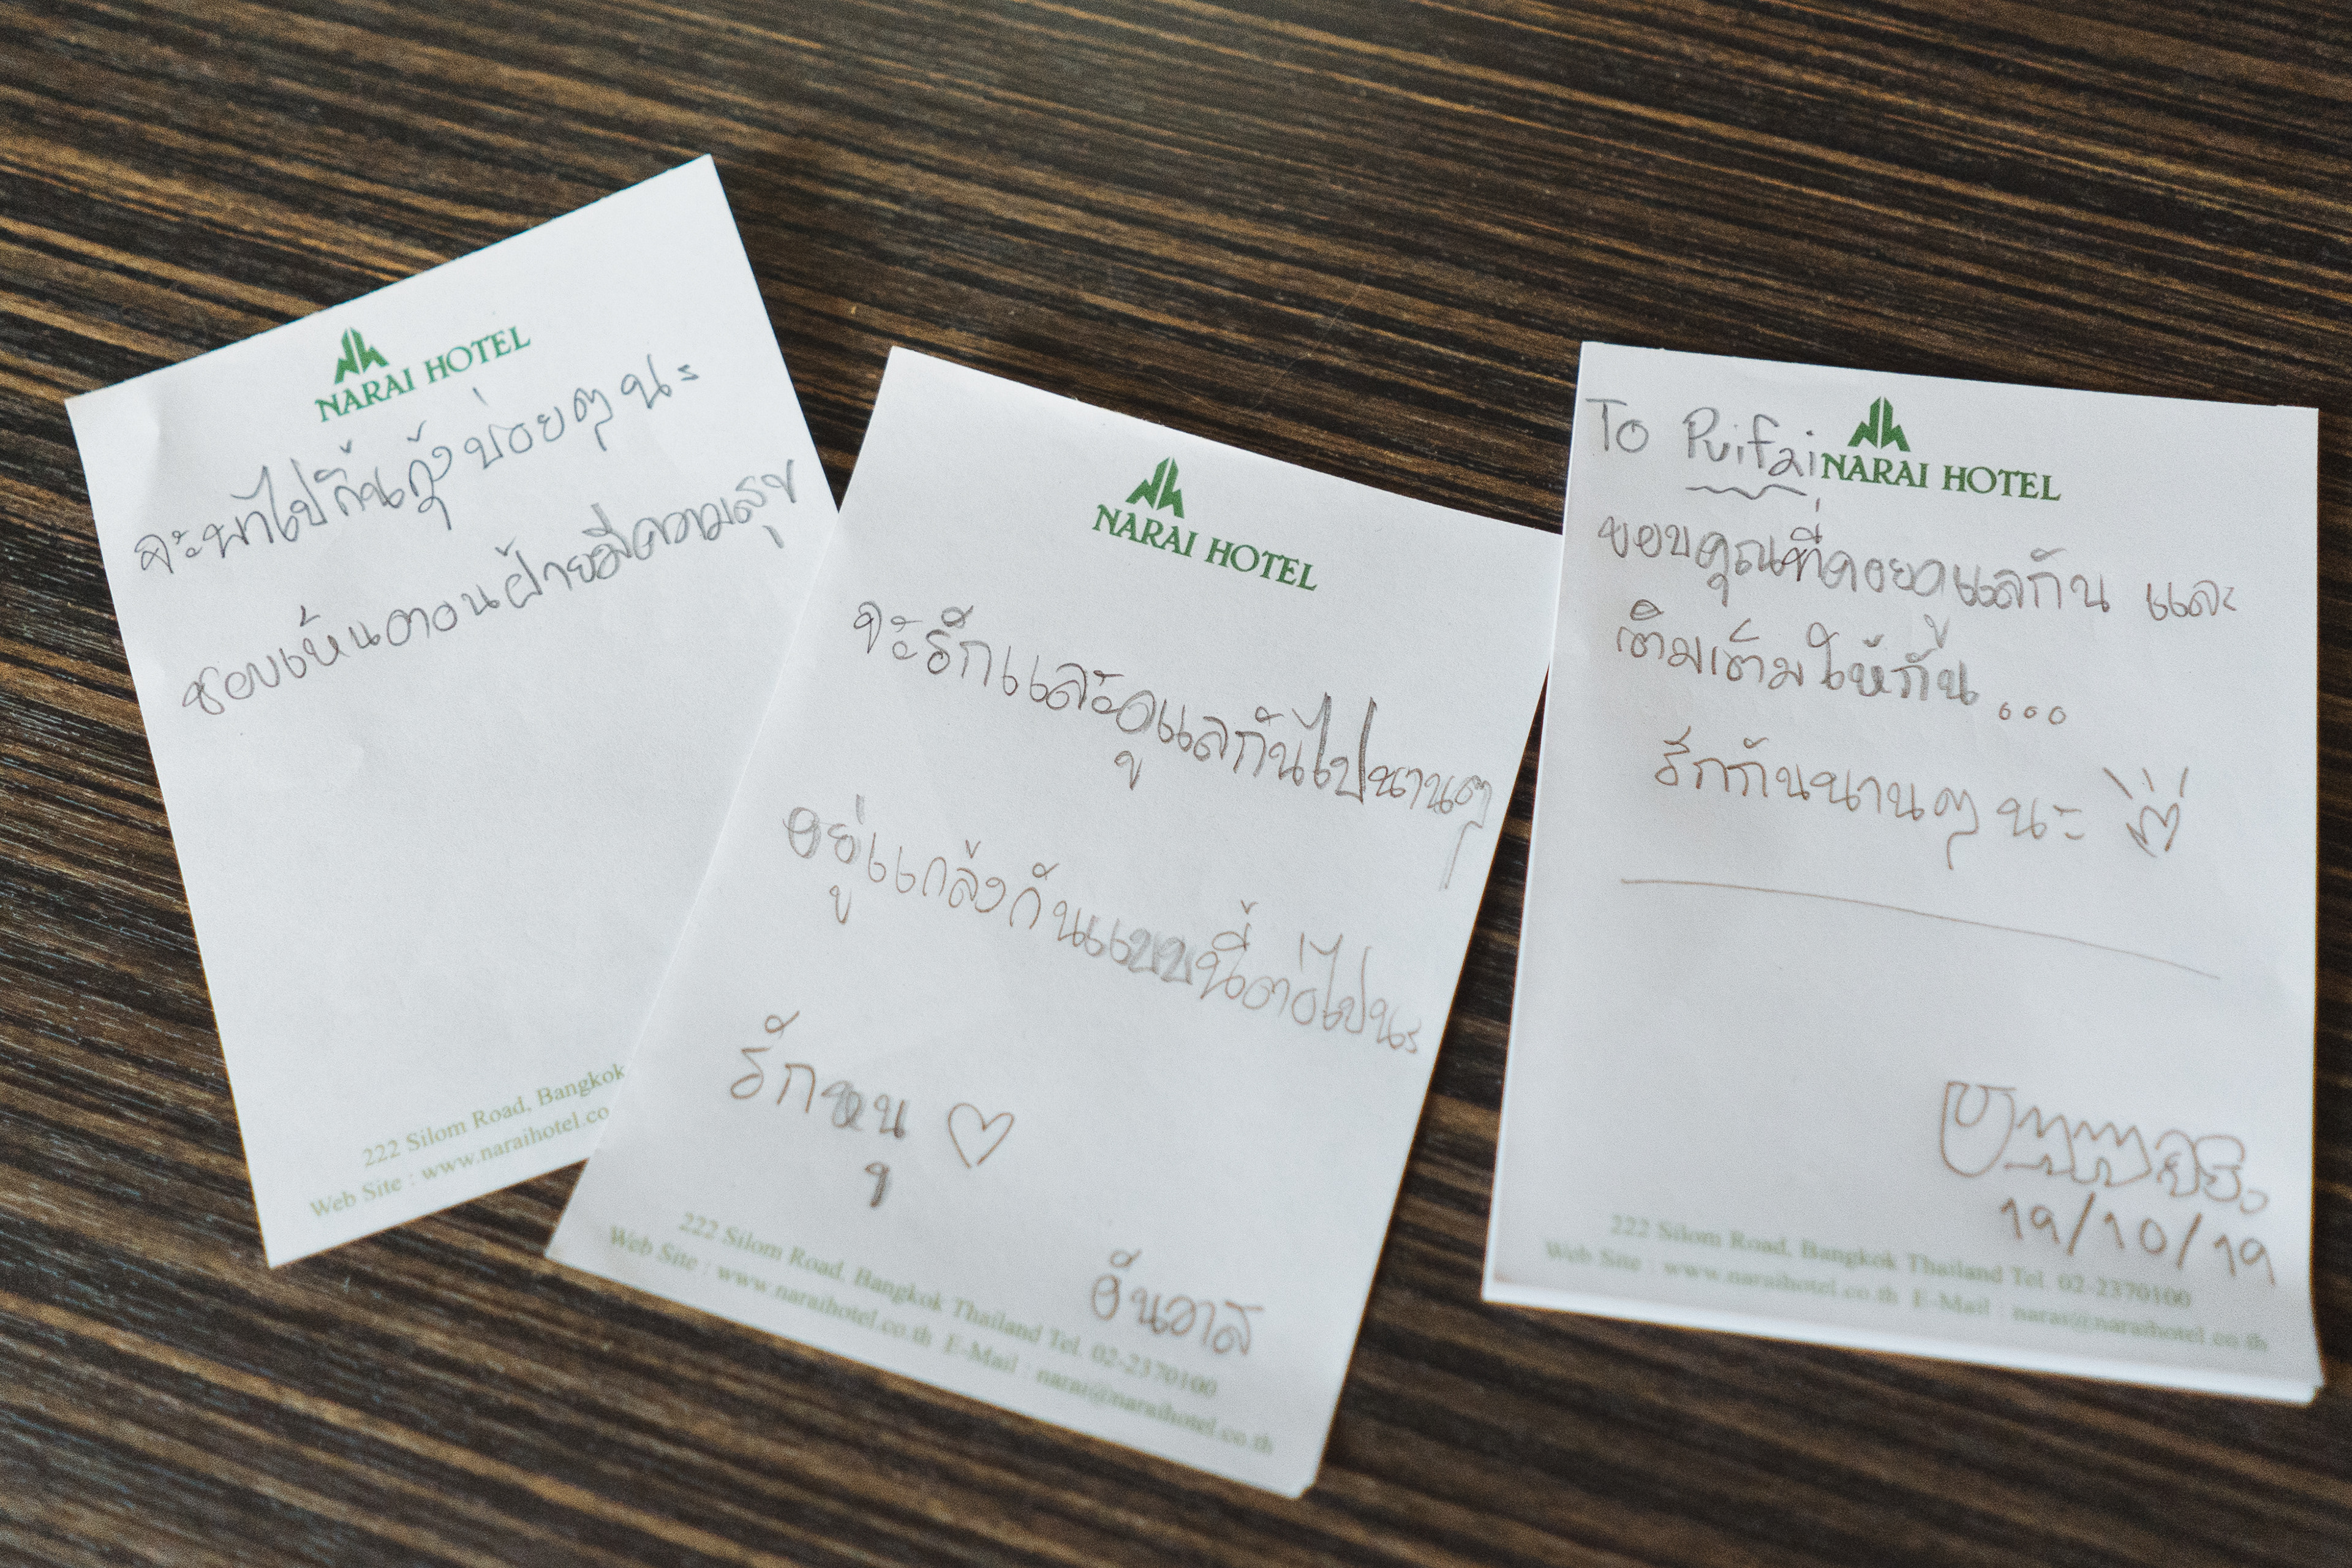 NARAI HOTEL
จะพาไปกินกุ้งบ่อยๆ นะ
ชอบเห็นตอนฝ้ายมีความสุข
222 Silom Road, Bangkok
Web Site : www.naraihotel.co
NARAI HOTEL
จะรักและดูแลกันไปนานๆ
อยู่แกล้งกันแบบนี้ต่อไปนะ
รักหนู ♡
222 Silom Road, Bangkok Thailand Tel. 02-2370100
Web Site : www.naraihotel.co.th E-Mail : narai@naraihotel.co.th
To Puifai
NARAI HOTEL
ขอบคุณที่คอยดูแลกัน และ
เติมเต็มให้กัน...
รักกันนานๆ นะ
19/10/19
222 Silom Road, Bangkok Thailand Tel. 02-2370100
Web Site : www.naraihotel.co.th E-Mail : narai@naraihotel.co.th